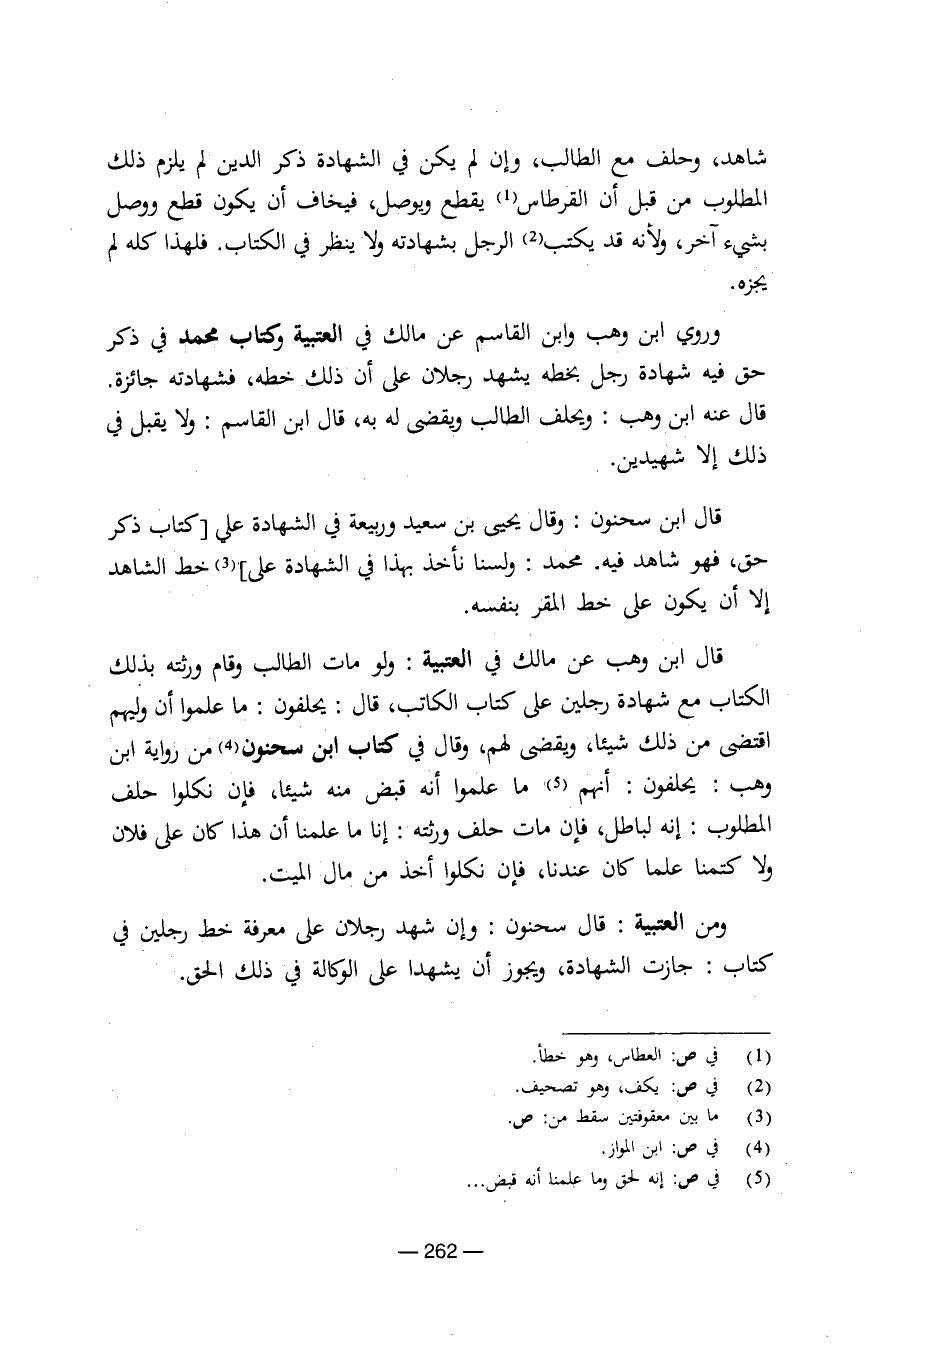 شاهد، وحلف مع الطالب، وإن لم يكن في الشهادة ذكر الدين لم يلزم ذلك
المطلوب من قبل أن القرطاس(1) يقطع ويوصل، فيخاف أن يكون قطع ووصل
بشيء آخر، ولأنه قد يكتب(2) الرجل بشهادته ولا ينظر في الكتاب. فلهذا كله لم
يجزه.
وروي ابن وهب وابن القاسم عن مالك في العتبية وكتاب محمد في ذكر
حق فيه شهادة رجل بخطه يشهد رجلان على أن ذلك خطه، فشهادته جائزة.
قال عنه ابن وهب : ويحلف الطالب ويقضى له به، قال ابن القاسم : ولا يقبل في
ذلك إلا شهيدين.
قال ابن سحنون : وقال يحيى بن سعيد وربيعة في الشهادة علي [كتاب ذكر
حق، فهو شاهد فيه. محمد : ولسنا نأخذ بهذا في الشهادة على](3) خط الشاهد
إلا أن يكون على خط المقر بنفسه.
قال ابن وهب عن مالك في العتبية : ولو مات الطالب وقام ورثته بذلك
الكتاب مع شهادة رجلين على كتاب الكاتب، قال : يحلفون : ما علموا أن وليهم
اقتضى من ذلك شيئا، ويقضى لهم، وقال في كتاب ابن سحنون(4) من رواية ابن
وهب : يحلفون : أنهم (5) ما علموا أنه قبض منه شيئا، فإن نكلوا حلف
المطلوب : إنه لباطل، فإن مات حلف ورثته : إنا ما علمنا أن هذا كان على فلان
ولا كتمنا علما كان عندنا، فإن نكلوا أخذ من مال الميت.
ومن العتبية : قال سحنون : وإن شهد رجلان على معرفة خط رجلين في
كتاب : جازت الشهادة، ويجوز أن يشهدا على الوكالة في ذلك الحق.
(1) في ص: العطاس، وهو خطأ.
(2) في ص: يكف، وهو تصحيف.
(3) ما بين معقوفتين سقط من: ص.
(4) في ص: ابن المواز.
(5) في ص: إنه لحق وما علمنا أنه قبض...
— 262 —